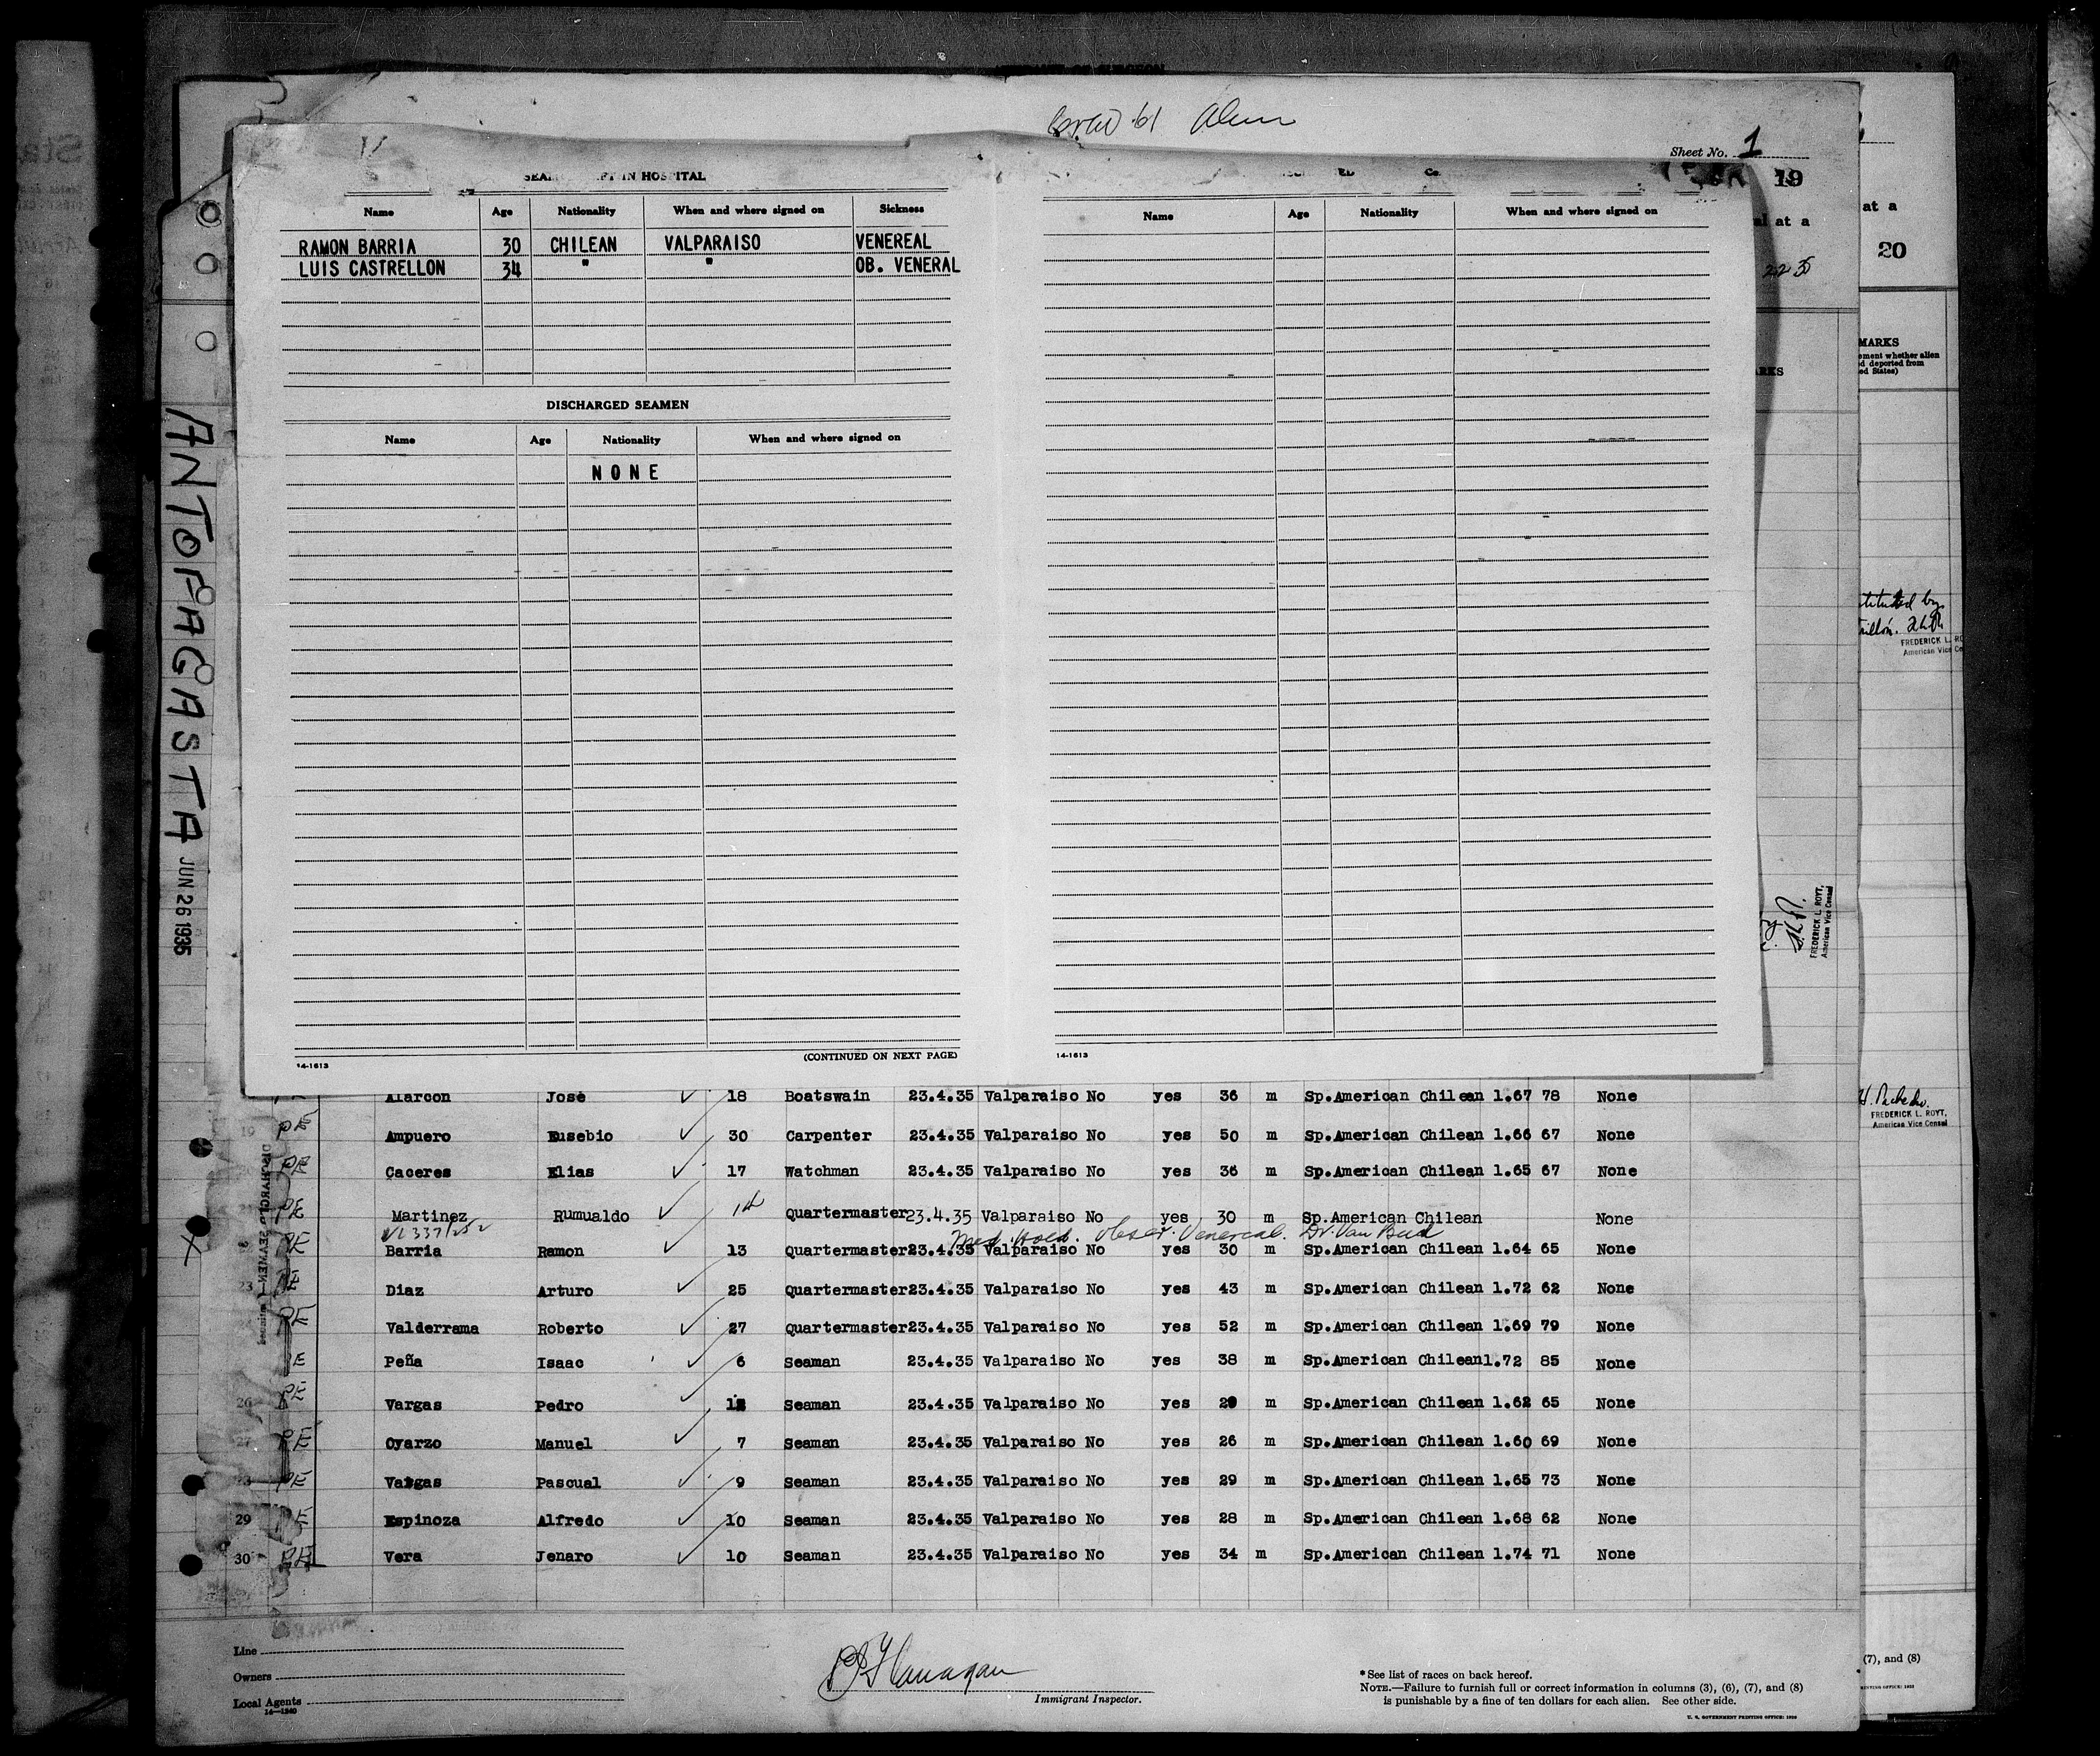 Sheet No. 1
IN HOSPITAL
Name Age Nationality When and where signed on Sickness
RAMON BARRIA 30 CHILEAN VALPARAISO VENEREAL
LUIS CASTRELLON 34 " " OB. VENERAL
DISCHARGED SEAMEN
Name Age Nationality When and where signed on
NONE
(CONTINUED ON NEXT PAGE)
14-1613
Name Age Nationality When and where signed on
14-1613
19
at a
at a
20
MARKS
ement whether alien
d deported from
ed States)
FREDERICK L.
American Vice
FREDERICK L. ROYT,
American Vice Consul
FREDERICK L. ROYT,
American Vice Consul
ANTOFAGASTA JUN 26 1935
Alarcon José 18 Boatswain 23.4.35 Valparaiso No yes 36 m Sp.American Chilean 1.67 78 None
PE Ampuero Eusebio 30 Carpenter 23.4.35 Valparaiso No yes 50 m Sp.American Chilean 1.66 67 None
PE Caceres Elias 17 Watchman 23.4.35 Valparaiso No yes 36 m Sp.American Chilean 1.65 67 None
PE Martinez Rumualdo 14 Quartermaster 23.4.35 Valparaiso No yes 30 m Sp.American Chilean None
Med. Hold. Obser. Venereal. Dr. Van
PE Barria Ramon 13 Quartermaster 23.4.35 Valparaiso No yes 30 m Sp.American Chilean 1.64 65 None
23 PE Diaz Arturo 25 Quartermaster 23.4.35 Valparaiso No yes 43 m Sp.American Chilean 1.72 62 None
PE Valderrama Roberto 27 Quartermaster 23.4.35 Valparaiso No yes 52 m Sp.American Chilean 1.69 79 None
PE Peña Isaac 6 Seaman 23.4.35 Valparaiso No yes 38 m Sp.American Chilean 1.72 85 None
26 PE Vargas Pedro Seaman 23.4.35 Valparaiso No yes m Sp.American Chilean 1.62 65 None
27 PE Oyarzo Manuel 7 Seaman 23.4.35 Valparaiso No yes 26 m Sp.American Chilean 1.60 69 None
PE Vargas Pascual 9 Seaman 23.4.35 Valparaiso No yes 29 m Sp.American Chilean 1.65 73 None
29 PE Espinoza Alfredo 10 Seaman 23.4.35 Valparaiso No yes 28 m Sp.American Chilean 1.68 62 None
30 PE Vera Jenaro 10 Seaman 23.4.35 Valparaiso No yes 34 m Sp.American Chilean 1.74 71 None
Line
Owners
Local Agents
14—1240
Flanagan
Immigrant Inspector.
* See list of races on back hereof.
NOTE.—Failure to furnish full or correct information in columns (3), (6), (7), and (8)
is punishable by a fine of ten dollars for each alien. See other side.
(7), and (8)